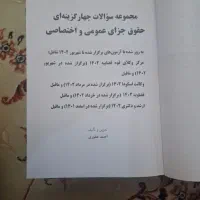 مجموعه سؤالات چهارگزینه‌ای
حقوق جزای عمومی و اختصاصی
به روز شده تا آزمون‌های برگزار شده تا شهریور ۱۴۰۲ شامل:
مرکز وکلای قوه قضاییه ۱۴۰۲ (برگزار شده در شهریور
۱۴۰۲) و ماقبل
وکالت اسکودا ۱۴۰۲ (برگزار شده در مرداد ۱۴۰۲) و ماقبل
قضاوت ۱۴۰۲ (برگزار شده در خرداد ۱۴۰۲) و ماقبل
ارشد و دکتری ۱۴۰۲ (برگزار شده در اسفند ۱۴۰۱) و ماقبل